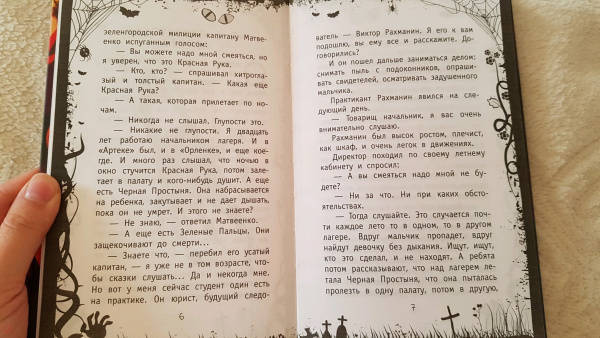 зеленгородской милиции капитану Матве-
енко испуганным голосом:
— Вы можете надо мной смеяться, но
я уверен, что это Красная Рука.
— Кто, кто? — спрашивал хитрогла-
зый и толстый капитан. — Какая еще
Красная Рука?
— А такая, которая прилетает по но-
чам.
— Никогда не слышал. Глупости это.
— Никакие не глупости. Я двадцать
лет работаю начальником лагеря. И в
«Артеке» был, и в «Орленке», и еще кое-
где. И много раз слышал, что ночью в
окно стучится Красная Рука, потом зале-
тает в палату и кого-нибудь душит. А еще
есть Черная Простыня. Она набрасывается
на ребенка, закутывает и не дает дышать,
пока он не умрет. И этого не знаете?
— Не знаю, — ответил Матвеенко.
— А еще есть Зеленые Пальцы. Они
защекочивают до смерти...
— Знаете что, — перебил его усатый
капитан, — я уже не в том возрасте, что-
бы сказки слушать... Да и некогда мне.
Но вот у меня сейчас студент один есть
на практике. Он юрист, будущий следо-
6
ватель — Виктор Рахманин. Я его к вам
подошлю, вы ему все и расскажите. До-
говорились?
И он пошел дальше заниматься делом:
снимать пыль с подоконников, опраши-
вать свидетелей, осматривать задушенного
мальчика.
Практикант Рахманин явился на сле-
дующий день.
— Товарищ начальник, я вас очень
внимательно слушаю.
Рахманин был высок ростом, плечист,
как шкаф, и очень легок в движениях.
Директор походил по своему летнему
кабинету и спросил:
— А вы смеяться надо мной не бу-
дете?
— Ни за что. Ни при каких обсто-
ятельствах.
— Тогда слушайте. Это случается поч-
ти каждое лето то в одном, то в другом
лагере. Вдруг мальчик пропадет, вдруг
найдут девочку без дыхания. Ищут, ищут,
кто это сделал, и не находят. А ребята
потом рассказывают, что над лагерем ле-
тала Черная Простыня, что она пыталась
пролезть в одну палату, потом в другую,
7